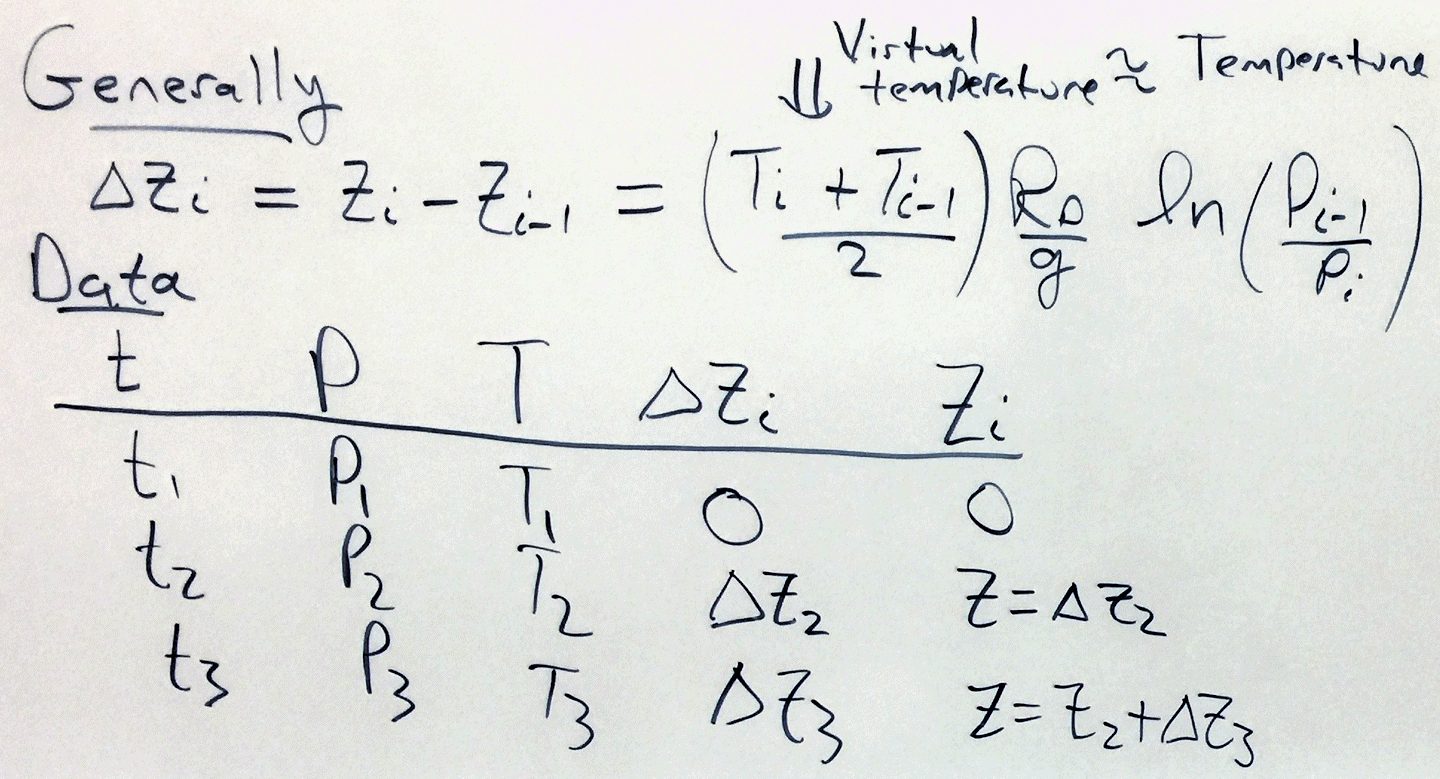 Generally
⇓ Virtual temperature ≈ Temperature
ΔZi = Zi - Zi-1 = ((Ti + Ti-1)/2) RD/g ln(Pi-1/Pi)
Data
t P T ΔZi Zi
t1 P1 T1 0 0
t2 P2 T2 ΔZ2 Z=ΔZ2
t3 P3 T3 ΔZ3 Z=Z2+ΔZ3